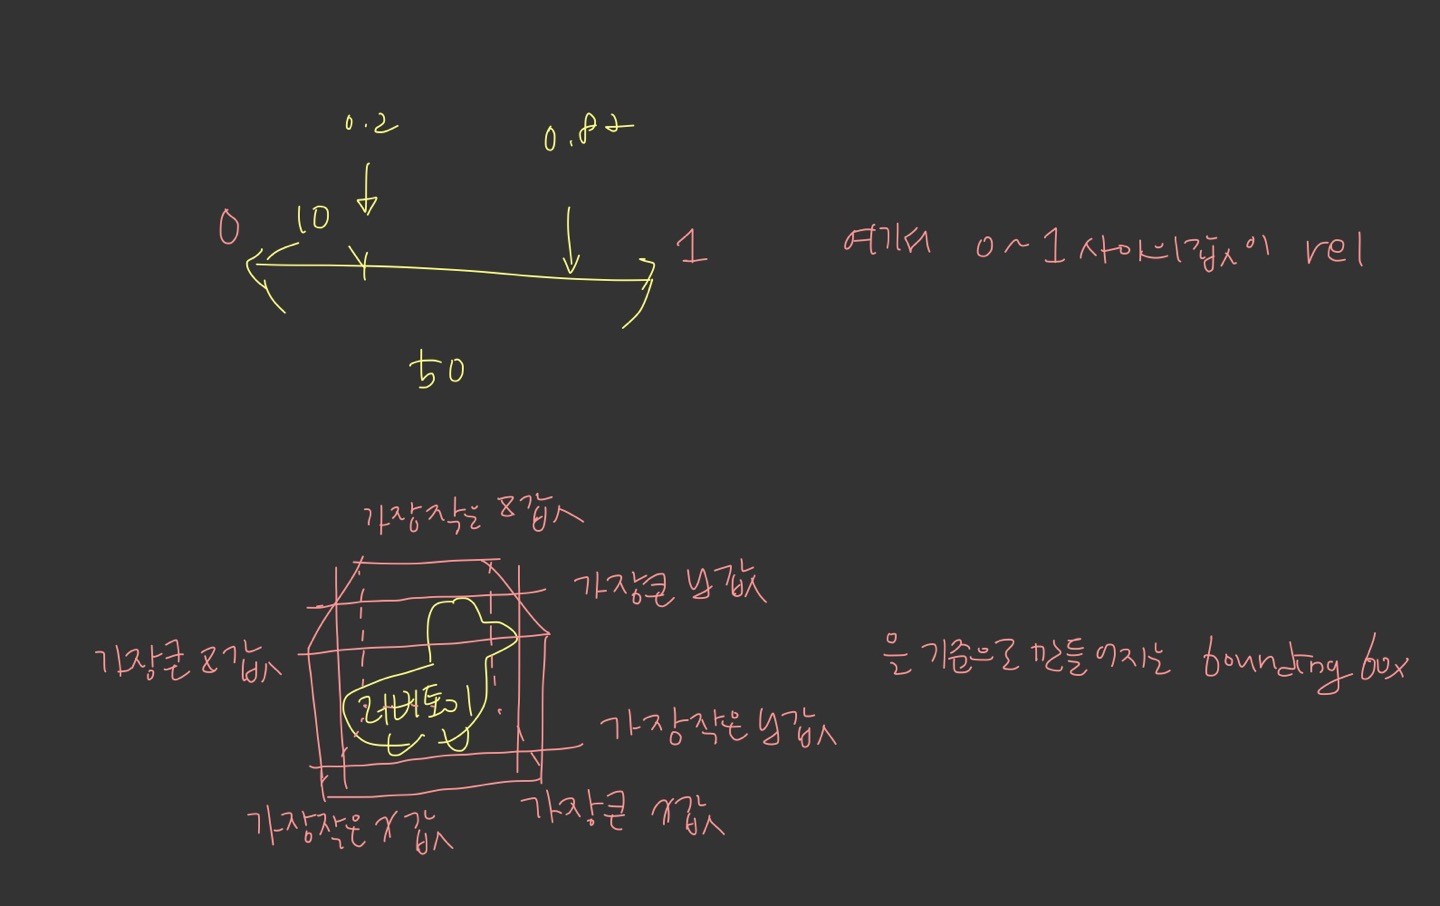 0.2
0.82
0
10
1
여기서 0~1 사이의 값이 rel
50
가장작은 z값
가장큰 y값
가장큰 z값
을 기준으로 만들어지는 bounding box
러버토이
가장작은 y값
가장작은 x값
가장큰 x값